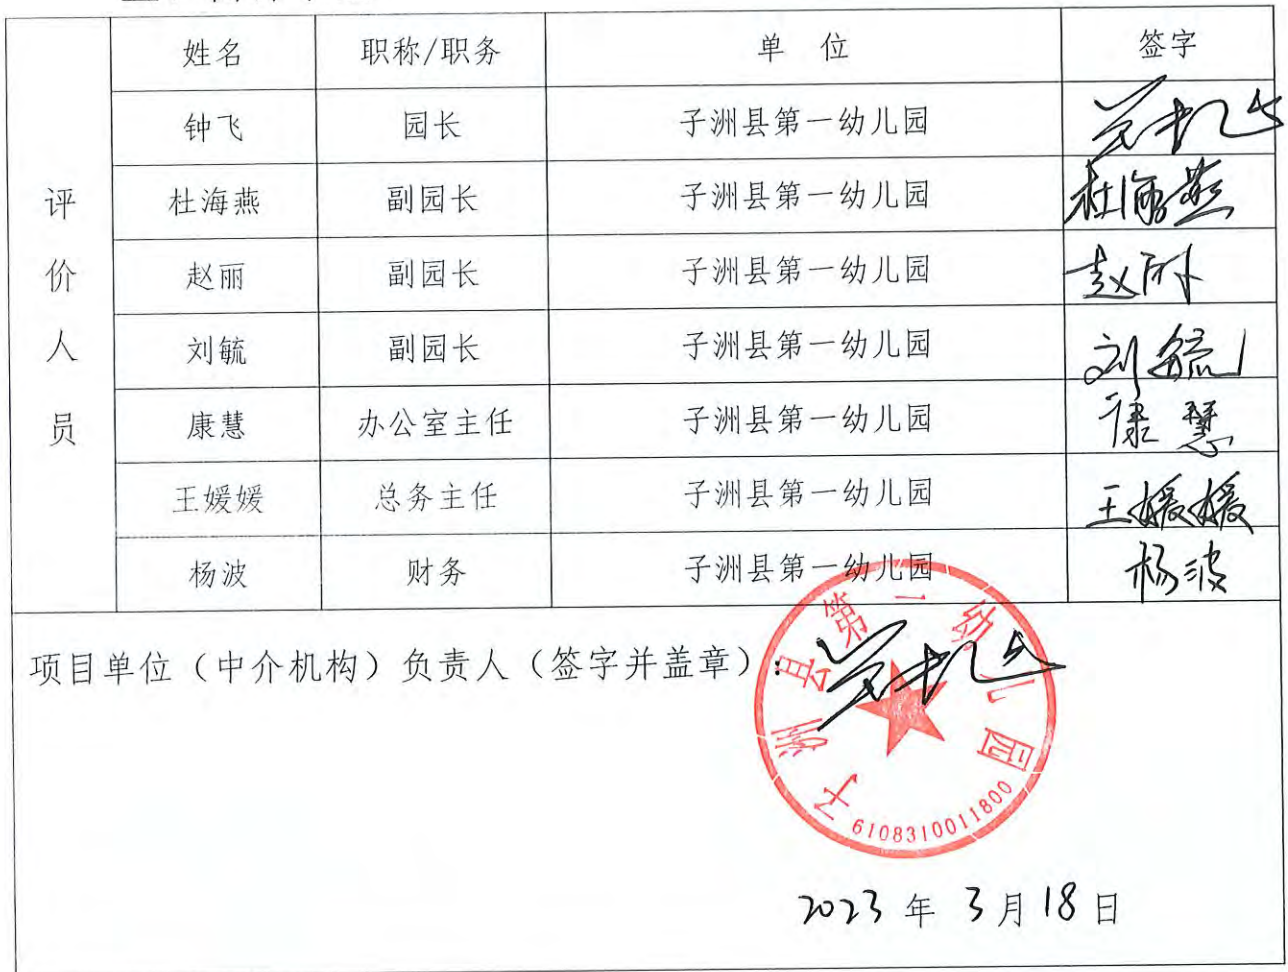 姓名 职称/职务 单 位 签字
钟飞 园长 子洲县第一幼儿园
杜海燕 副园长 子洲县第一幼儿园 杜海燕
赵丽 副园长 子洲县第一幼儿园 赵丽
刘毓 副园长 子洲县第一幼儿园 刘毓
康慧 办公室主任 子洲县第一幼儿园 康慧
王媛媛 总务主任 子洲县第一幼儿园 王媛媛
杨波 财务 子洲县第一幼儿园 杨波
评价人员
项目单位（中介机构）负责人（签字并盖章）：
子洲县第一幼儿园
6108310011800
2023 年 3 月 18 日